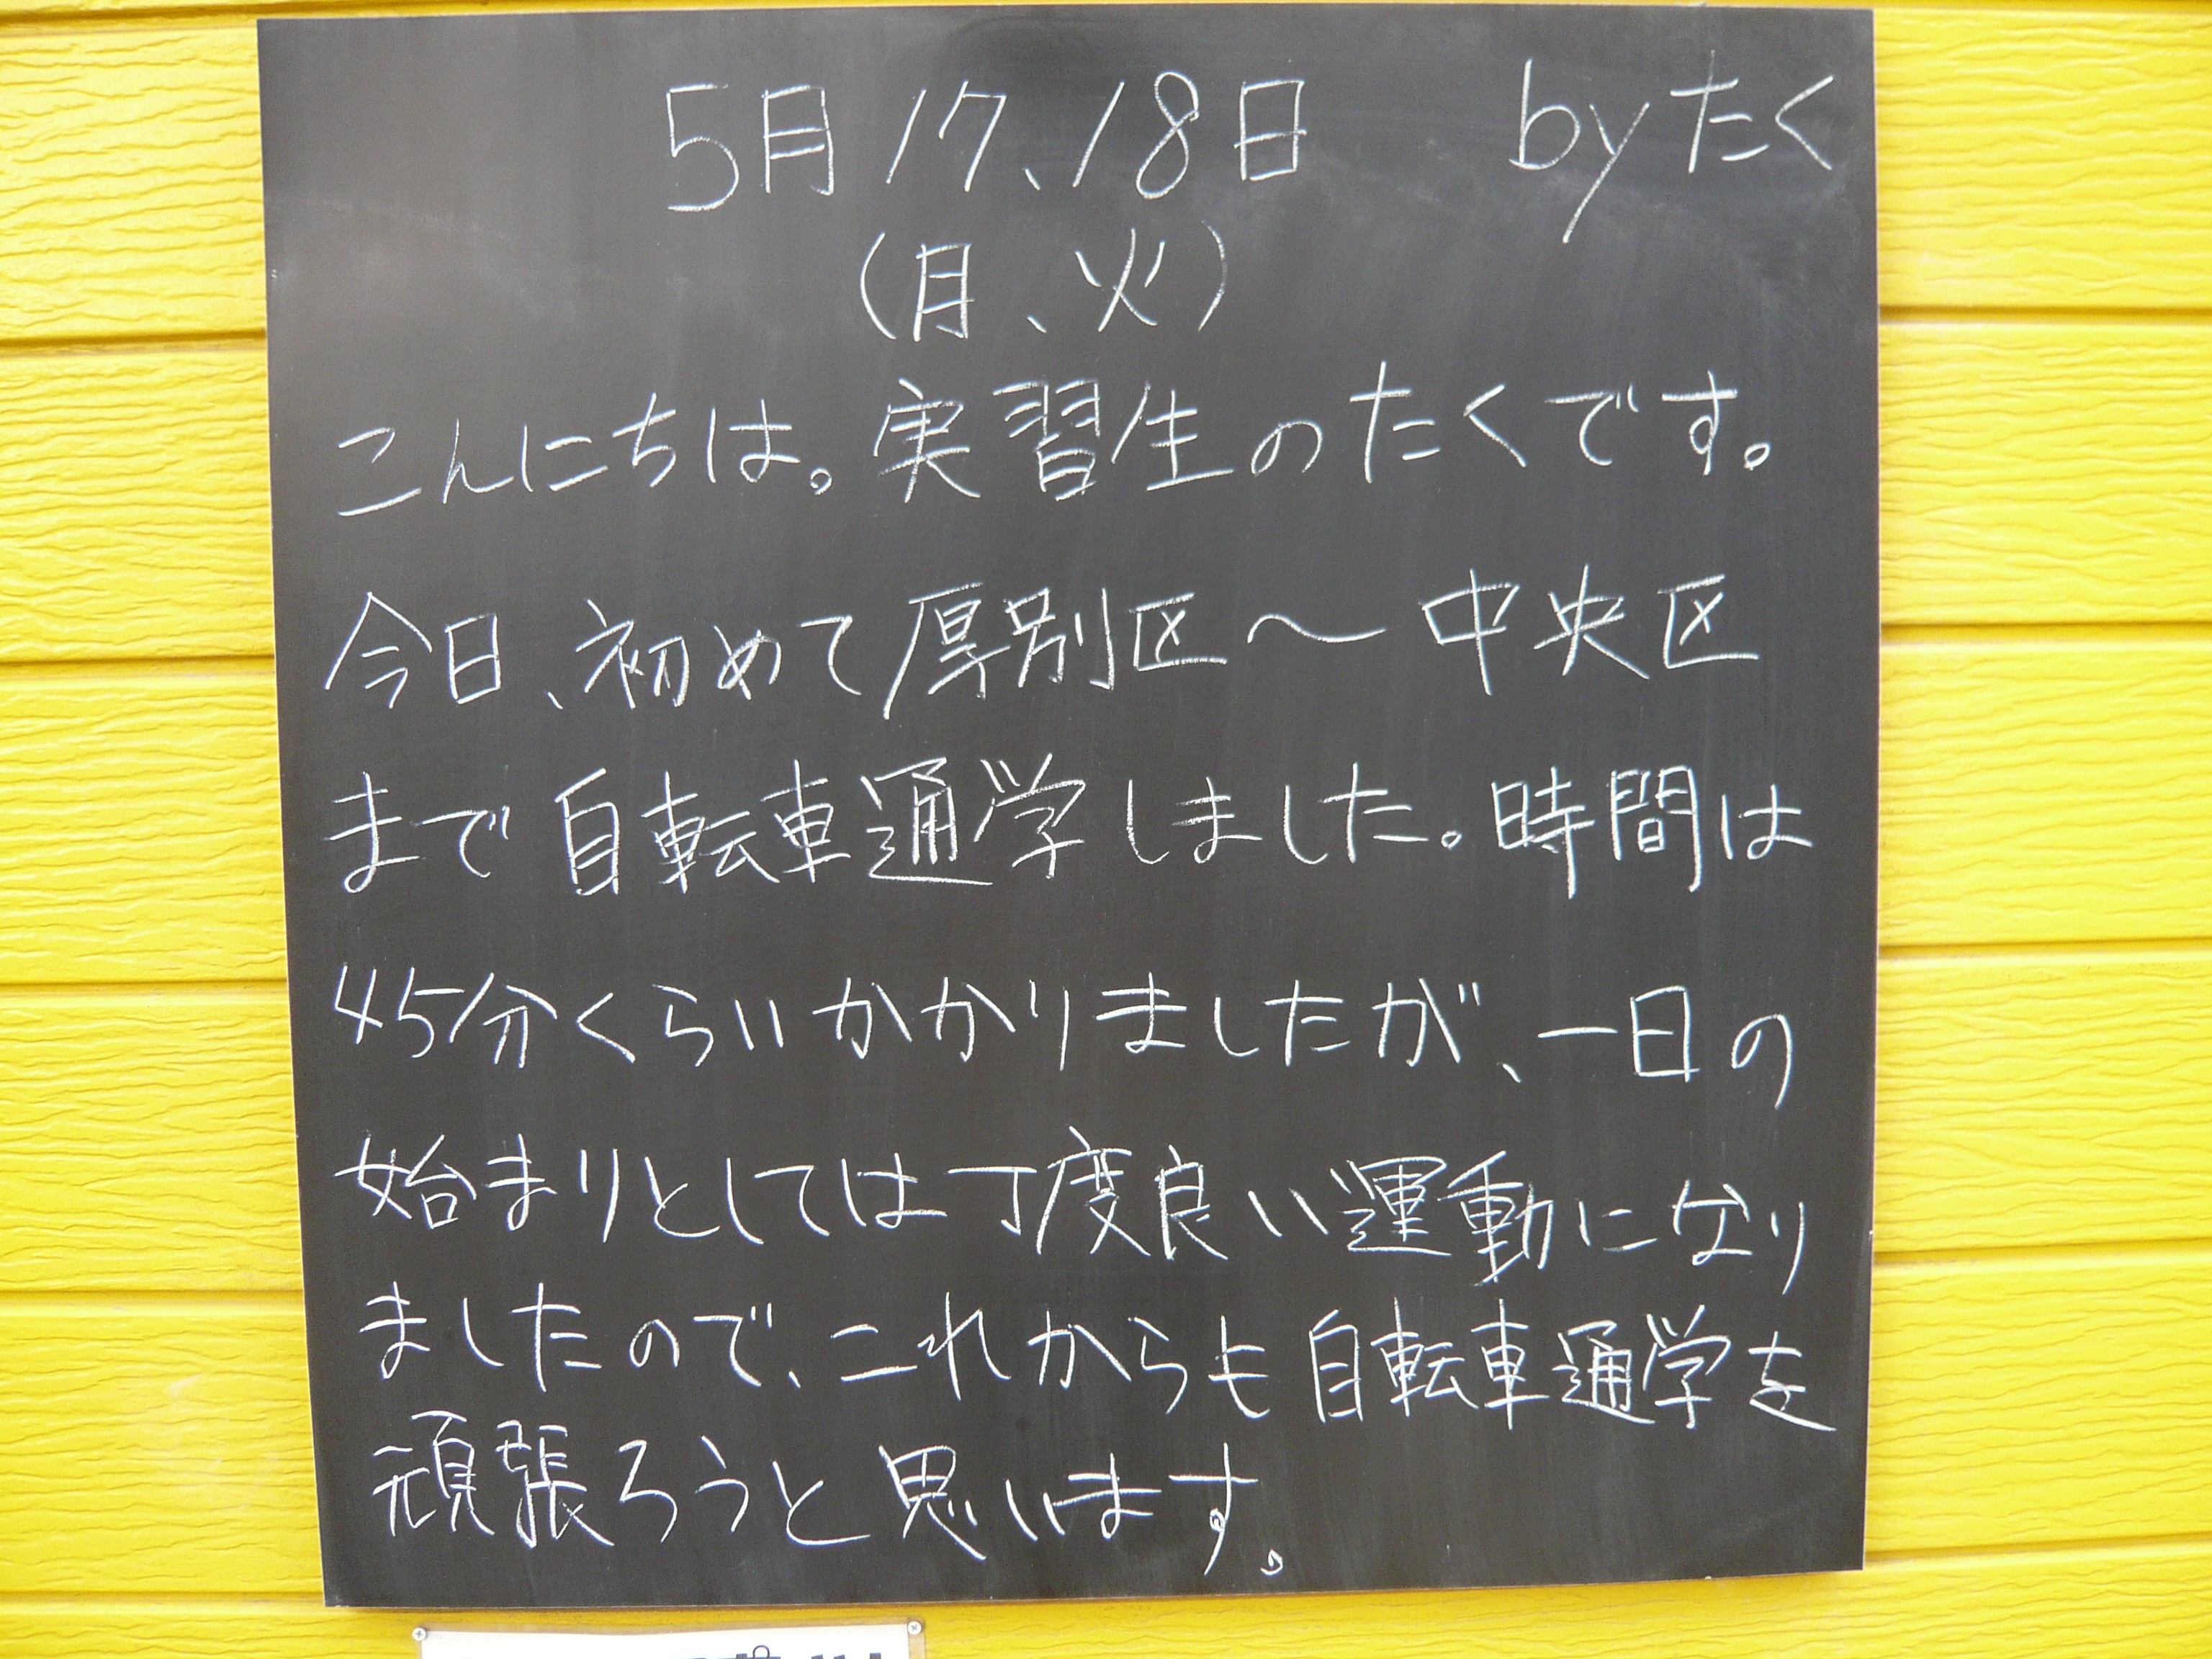 5月17、18日 byたく
(月、火)
こんにちは。実習生のたくです。
今日、初めて厚別区〜中央区
まで自転車通学しました。時間は
45分くらいかかりましたが、一日の
始まりとしては丁度良い運動になり
ましたので、これからも自転車通学を
頑張ろうと思います。